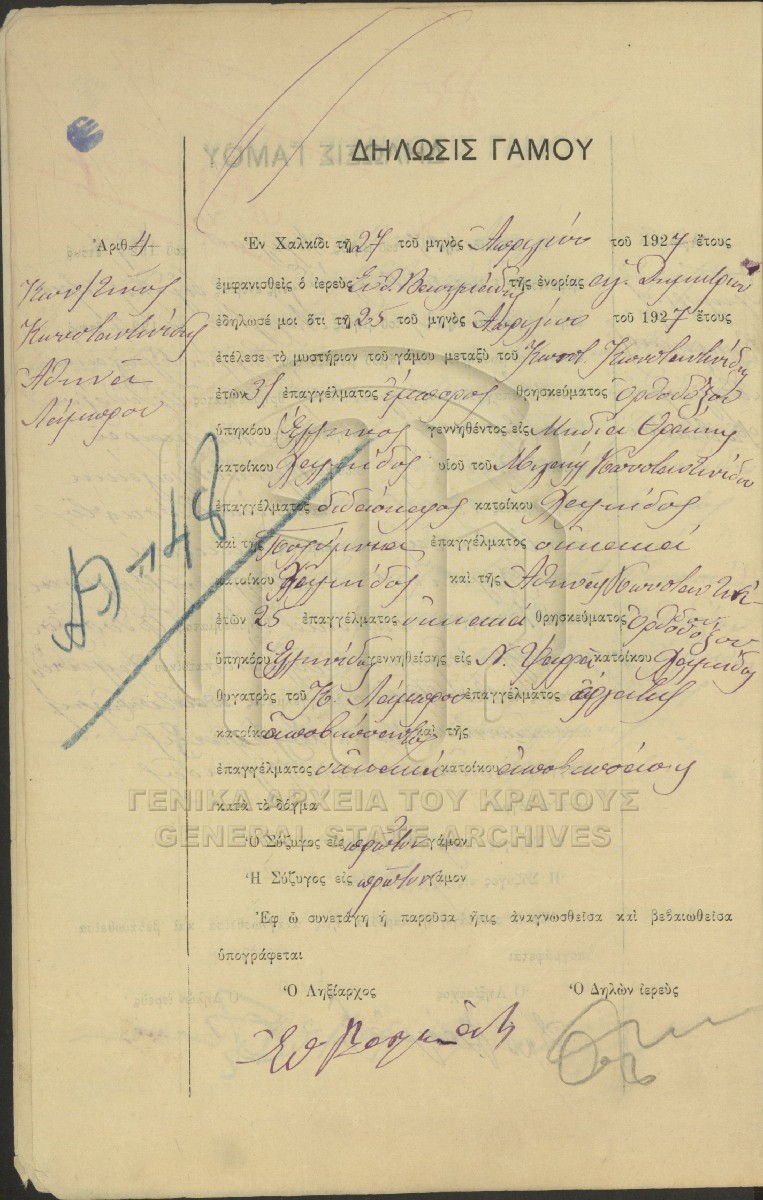 ΔΗΛΩΣΙΣ ΓΑΜΟΥ
Ἀριθ 4
Κωνσταντῖνος
Κωνσταντινίδης
Ἀθηνᾶ
Λάμπρου
ΑΠ-48
Ἐν Χαλκίδι τῇ 27 τοῦ μηνὸς Ἀπριλίου τοῦ 1927 ἔτους
ἐμφανισθεὶς ὁ ἱερεὺς τῆς ἐνορίας Ἁγ. Δημητρίου
ἐδήλωσέ μοι ὅτι τῇ 25 τοῦ μηνὸς Ἀπριλίου τοῦ 1927 ἔτους
ἐτέλεσε τὸ μυστήριον τοῦ γάμου μεταξὺ τοῦ Κωνστ. Κωνσταντινίδη
ἐτῶν 31 ἐπαγγέλματος ἔμπορος θρησκεύματος Ὀρθοδόξου
ὑπηκόου Ἕλληνος γεννηθέντος εἰς Μήδεια Θράκης
κατοίκου Χαλκίδος υἱοῦ τοῦ Κωνσταντινίδου
ἐπαγγέλματος διδάσκαλος κατοίκου Χαλκίδος
καὶ τῆς ἐπαγγέλματος οἰκιακά
κατοίκου Χαλκίδος καὶ τῆς Ἀθηνᾶς
ἐτῶν 25 ἐπαγγέλματος οἰκιακά θρησκεύματος Ὀρθοδόξου
ὑπηκόου Ἑλληνίδος γεννηθείσης εἰς Ν. Ψαρά κατοίκου Χαλκίδος
θυγατρὸς τοῦ Κ. Λάμπρου ἐπαγγέλματος ἐργάτης
κατοίκου ἀποβιώσαντος καὶ τῆς
ἐπαγγέλματος οἰκιακά κατοίκου ἀποβιωσάσης
κατὰ τὸ δόγμα
ΓΕΝΙΚΑ ΑΡΧΕΙΑ ΤΟΥ ΚΡΑΤΟΥΣ
GENERAL STATE ARCHIVES
Ὁ Σύζυγος εἰς πρῶτον γάμον
Ἡ Σύζυγος εἰς πρῶτον γάμον
Ἐφ ᾧ συνετάγη ἡ παροῦσα ἥτις ἀναγνωσθεῖσα καὶ βεβαιωθεῖσα
ὑπογράφεται
Ὁ Ληξίαρχος Ὁ Δηλῶν ἱερεὺς